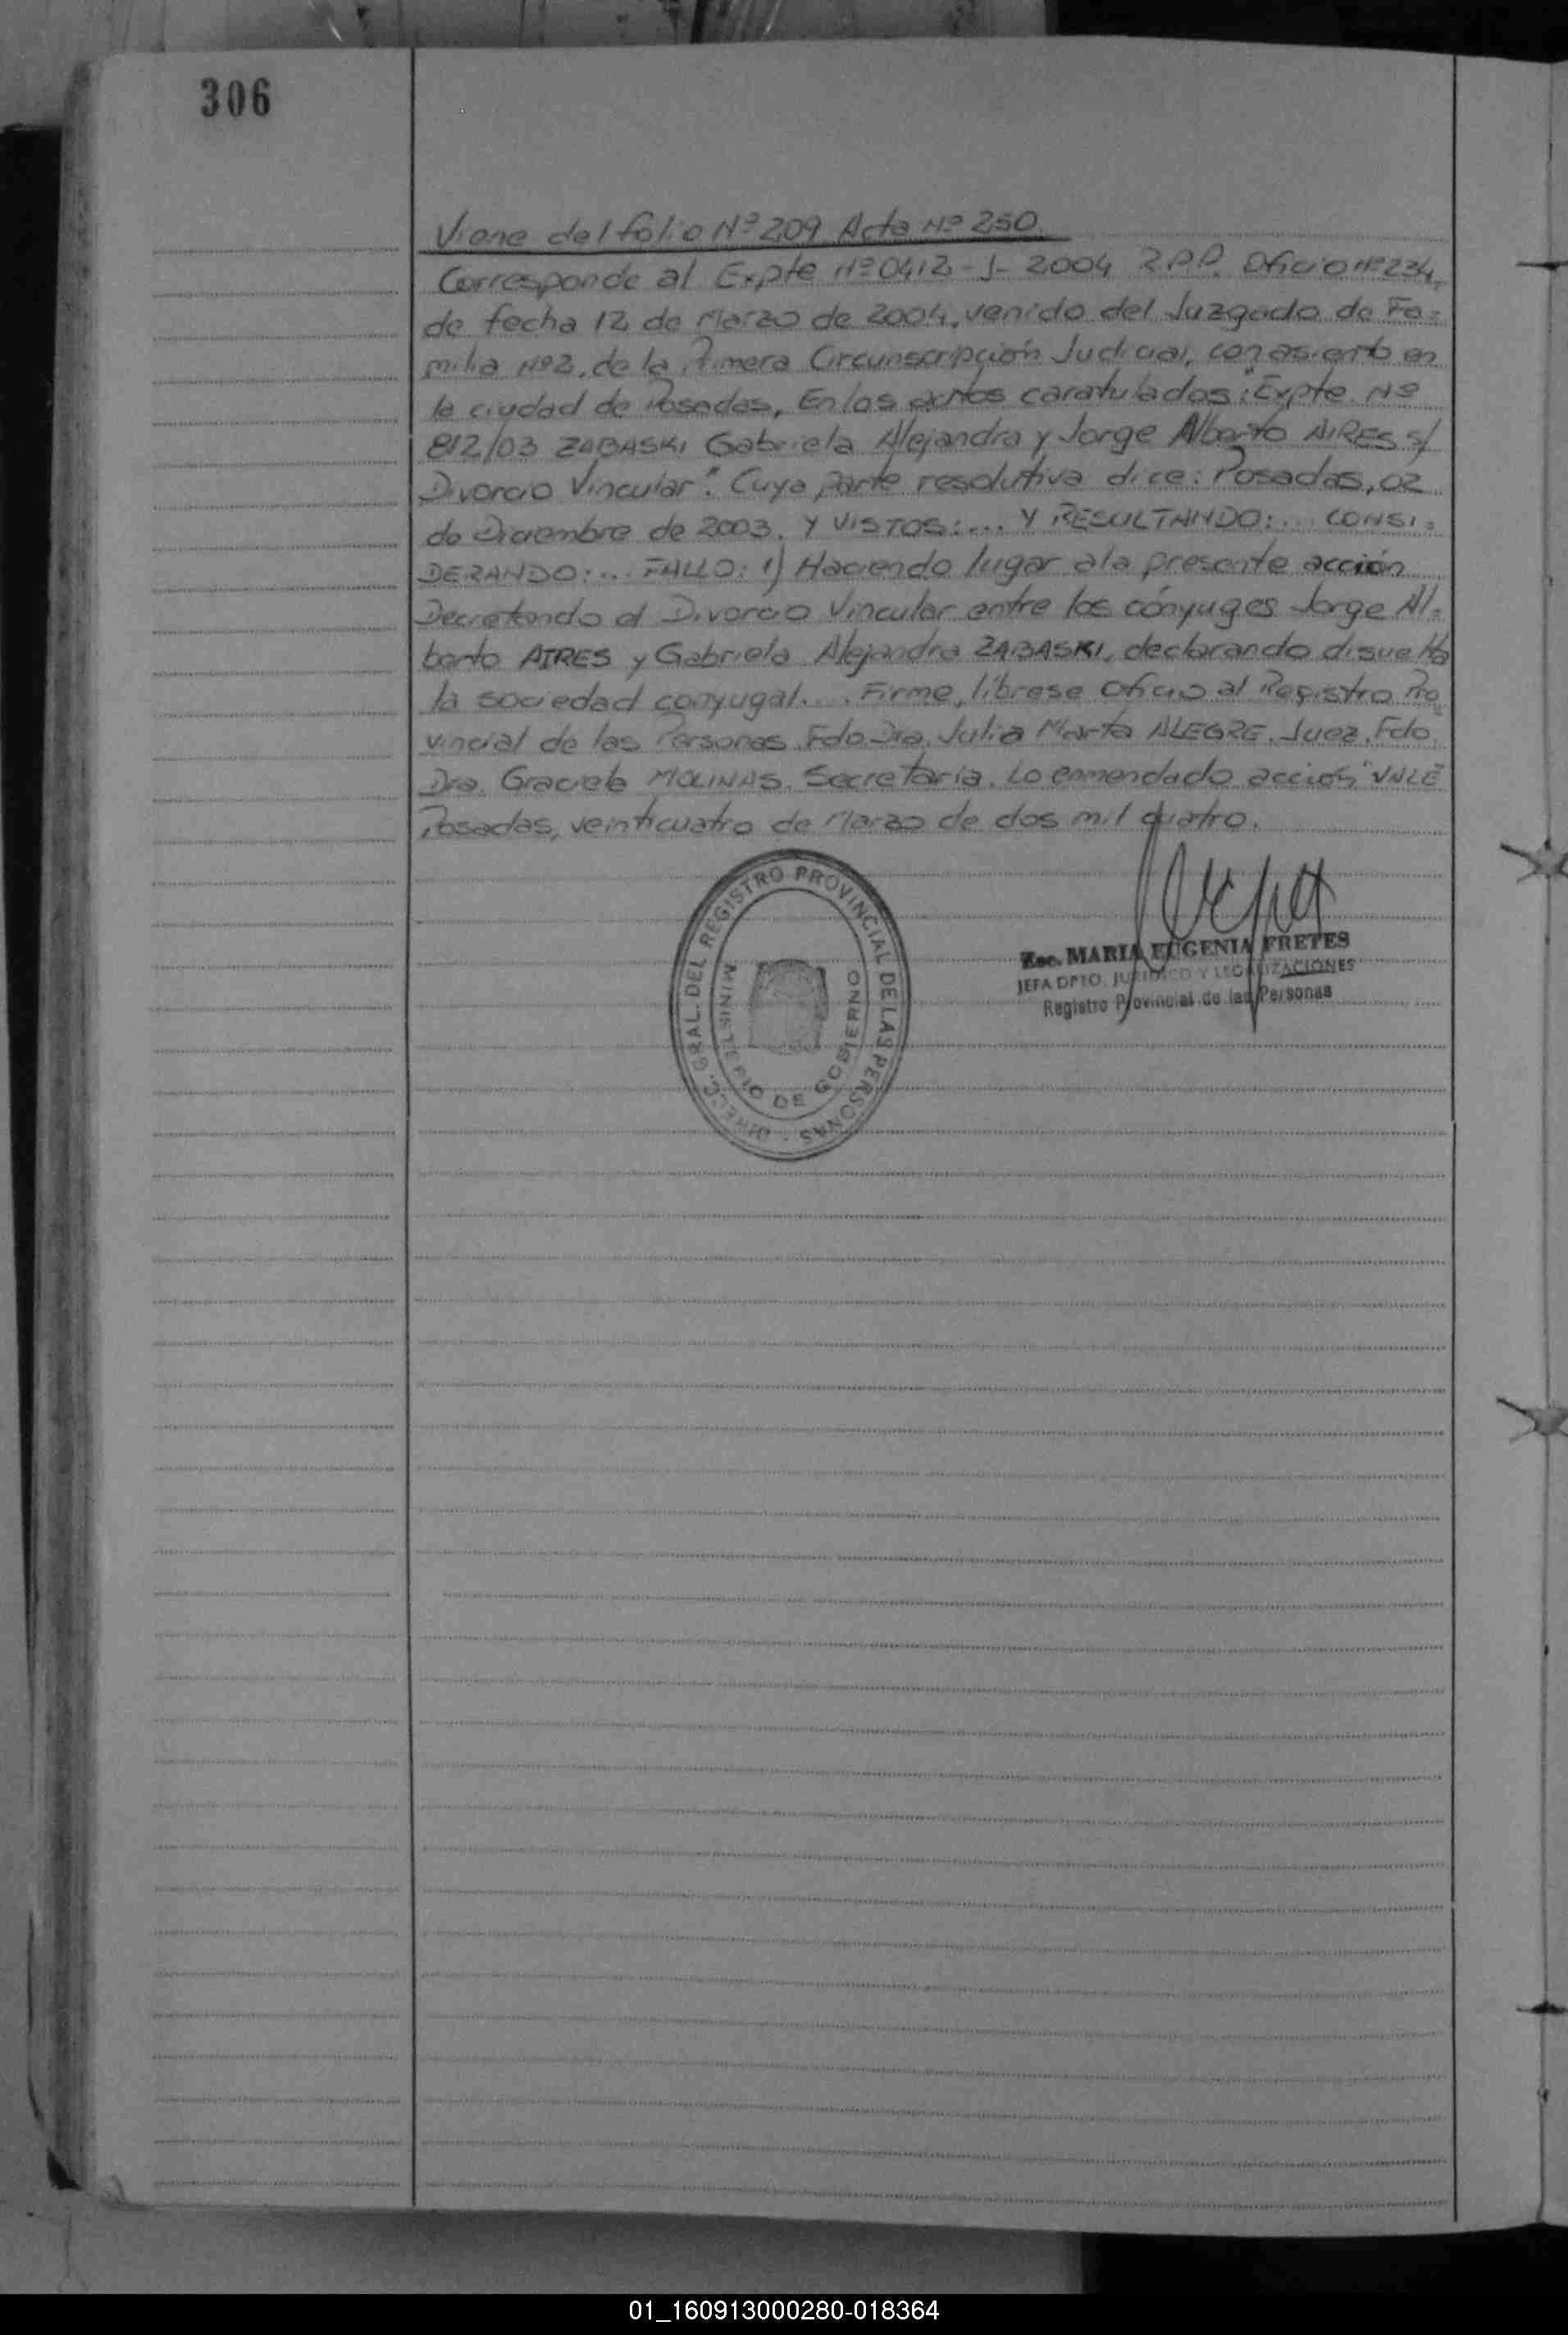 306
Viene del folio Nº 209 Acta Nº 250.
Corresponde al Expte Nº 0412-J-2004 R.P.P. Oficio Nº 234,
de fecha 12 de Marzo de 2004, venido del Juzgado de Fa=
milia Nº2, de la Primera Circunscripción Judicial, con asiento en
la ciudad de Posadas, En los autos caratulados: "Expte Nº
812/03 ZABASKI Gabriela Alejandra y Jorge Alberto AIRES s/
Divorcio Vincular". Cuya parte resolutiva dice: Posadas, 02
de Diciembre de 2003. Y VISTOS:... Y RESULTANDO:... CONSI=
DERANDO:... FALLO: 1) Haciendo lugar a la presente acción
Decretando el Divorcio Vincular entre los cónyuges Jorge Al=
berto AIRES y Gabriela Alejandra ZABASKI, declarando disuelta
la sociedad conyugal.... Firme, líbrese oficio al Registro Pro=
vincial de las Personas. Fdo. Dra. Julia Marta ALEGRE. Juez. Fdo.
Dra. Graciela MOLINAS. Secretaria. Lo enmendado "acción" VALE
Posadas, veinticuatro de Marzo de dos mil cuatro.
DIRECC. GRAL. DEL REGISTRO PROVINCIAL DE LAS PERSONAS
MINISTERIO DE GOBIERNO
Esc. MARIA EUGENIA FRETES
JEFA DPTO. JURIDICO Y LEGALIZACIONES
Registro Provincial de las Personas
01_160913000280-018364